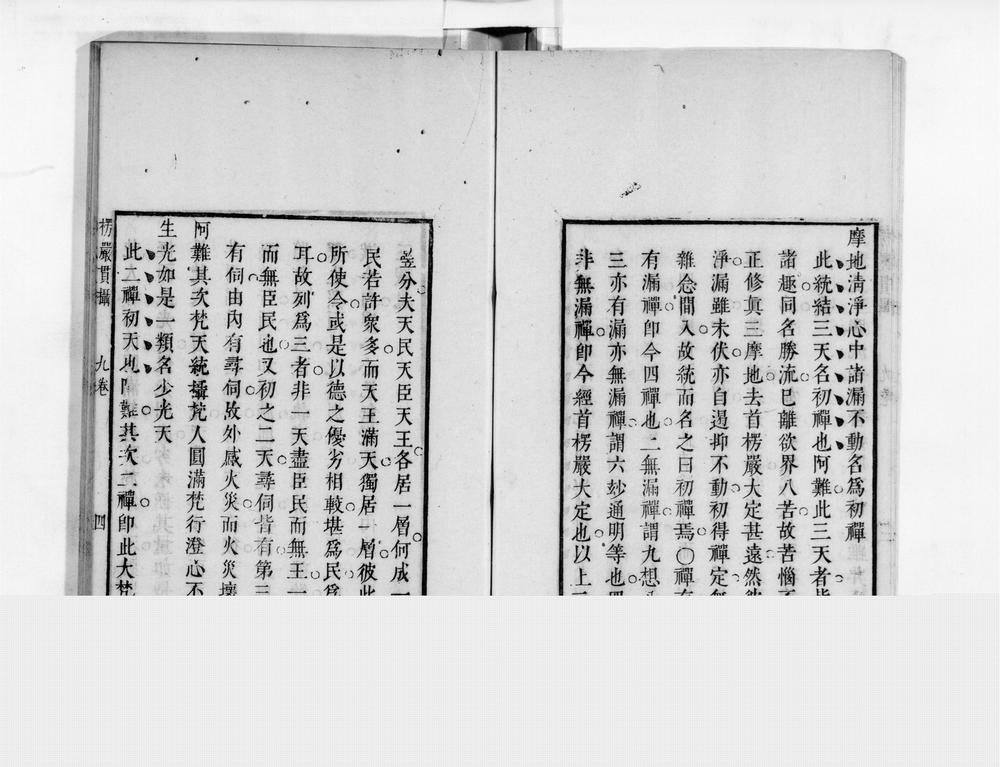 摩地清淨心中諸漏不動名爲初禪
此統結三天名初禪也阿難此三天者皆
諸趣同名勝流已離欲界八苦故苦惱不
正修眞三摩地去首楞嚴大定甚遠然欲
淨漏雖未伏亦自遏抑不動初得禪定無
雜念間入故統而名之曰初禪焉〇禪有
有漏禪卽今四禪也二無漏禪謂九想八
三亦有漏亦無漏禪謂六妙通明等也四
非無漏禪卽今經首楞嚴大定也以上三
豈分夫天民天臣天王各居一層何成一
民若許衆多而天王滿天獨居一層彼此
所使令或是以德之優劣相較堪爲民爲
耳故列爲三者非一天盡臣民而無王一
而無臣民也又初之二天尋伺皆有第三
有伺由內有尋伺故外感火災而火災壞
阿難其次梵天統攝梵人圓滿梵行澄心不
生光如是一類名少光天
此二禪初天也阿難其次二禪卽此大梵
楞嚴貫攝 九卷 四